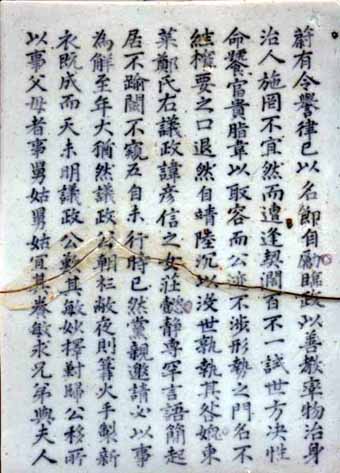 蔚有令譽律己以名節自勵臨政以善敎率物治身
治人施罔不宜然而遭逢契濶百不一試世方決性
命饕富貴脂韋以取容而公迹不涉形勢之門名不
絓權要之口退然自靖陸沉以沒世孰執其咎媲東
萊鄭氏右議政諱彦信之女莊懿靜專罕言語簡起
居不踰閾不窺五自未行時已然黨親邀請必以事
為解至年大猶然議政公朝衫敝夜則篝火手製新
衣既成而天未明議政公歎其敏妙擇對歸公移所
以事父母者事舅姑舅姑宜其養敏求兄弟與夫人